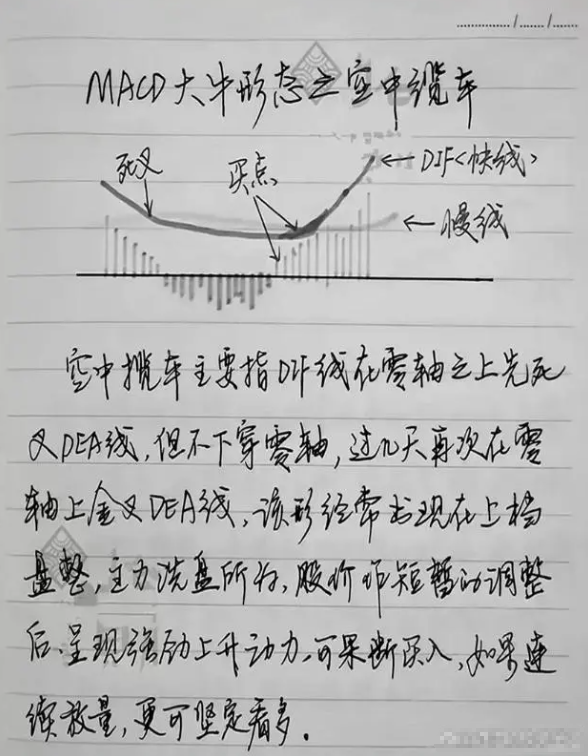 MACD大牛形态之空中缆车
死叉
买点
DIF<快线>
慢线
空中揽车主要指DIF线在零轴之上先死
叉DEA线,但不下穿零轴,过几天再次在零
轴上金叉DEA线,该形经常出现在上档
盘整,主力洗盘所为,股价作短暂的调整
后、呈现强劲上升动力,可果断买入,如果连
续放量,更可坚定看多。